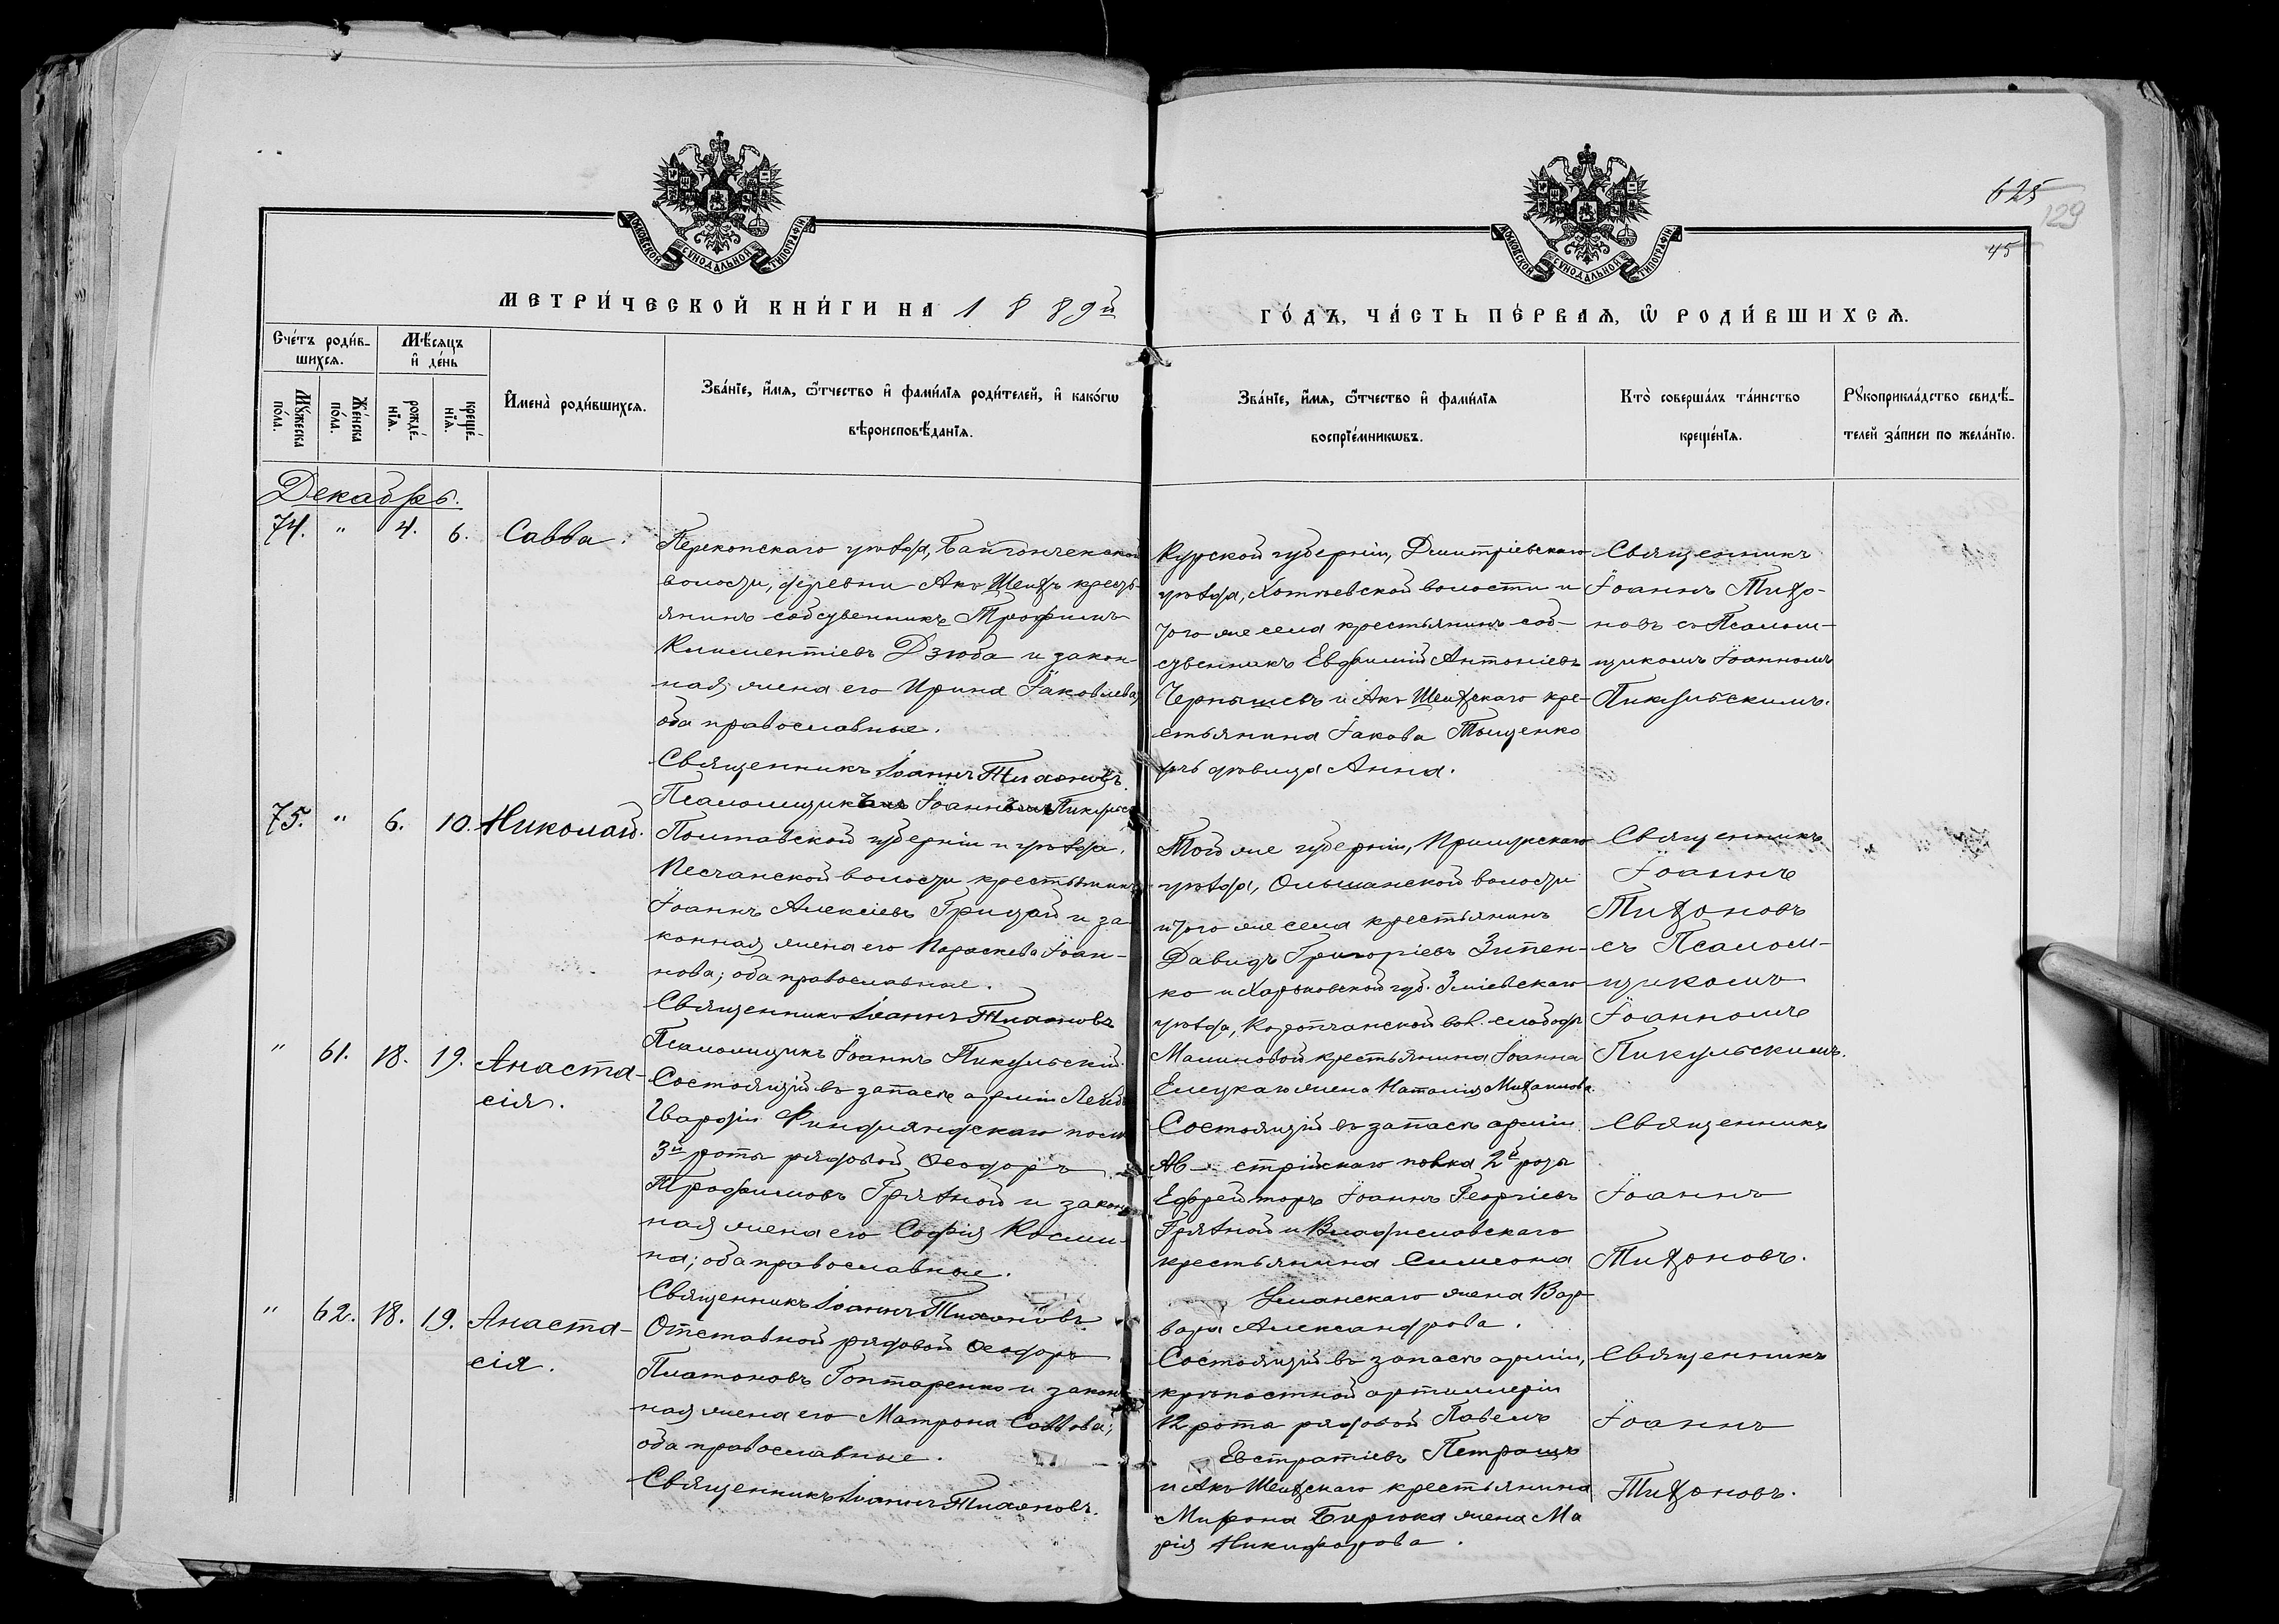 625
129
45
МОСКОВСКОЙ СѴНОДАЛЬНОЙ ТИПОГРАФІИ
МОСКОВСКОЙ СѴНОДАЛЬНОЙ ТИПОГРАФІИ
МЕТРИ́ЧЕСКОЙ КНИ́ГИ НА 1889й
ГО́ДЪ, ЧА́СТЬ ПЕ́РВАѦ, Ѡ РОДИ́ВШИХСѦ.
Сче́тъ роди́в-
шихсѧ.
Мꙋ́жеска
по́ла.
Же́нска
по́ла.
Мѣ́сѧцъ
и҆ де́нь
рожде́-
нїѧ.
креще́-
нїѧ.
И҆мена̀ роди́вшихсѧ.
Зва́нїе, и҆́мѧ, ѻ҆́тчество и҆ фами́лїѧ роди́телей, и҆ како́гѡ
вѣроисповѣ́данїѧ.
Зва́нїе, и҆́мѧ, ѻ҆́тчество и҆ фами́лїѧ
воспрїе́мникѡвъ.
Кто̀ соверша́лъ та́инство
креще́нїѧ.
Рꙋкоприкла́дство свидѣ́-
телей за́писи по жела́нїю.
Декабрь.
74. " 4. 6. Савва.
Перекопскаго уѣзда, Байгончекской
волости, деревни Акъ Шеихъ кресть-
янинъ собственникъ Трофимъ
Климентіевъ Дзюба и закон-
ная жена его Ирина Іаковлева;
оба православные.
Священникъ Іоаннъ Тихоновъ.
Псаломщикъ Іоаннъ Пикульск
Курской губерніи, Дмитріевскаго
уѣзда, Хотѣевской волости и
того же села крестьянинъ соб-
ственникъ Евфимій Антоніевъ
Чернышевъ и Акъ Шеихскаго кре-
стьянина Іакова Тыщенко
дочь дѣвица Анна.
Священникъ
Іоаннъ Тихо-
новъ съ Псалом-
щикомъ Іоанномъ
Пикульскимъ.
75. " 6. 10. Николай.
Полтавской губерніи и уѣзда,
Песчанской волости крестьянинъ
Іоаннъ Алексіевъ Грицай и за-
конная жена его Параскева Іоан-
нова; оба православные.
Священникъ Іоаннъ Тихоновъ
Псаломщикъ Іоаннъ Пикульскій.
Той же губерніи, Прилукскаго
уѣзда, Ольшанской волости
и того же села крестьянинъ
Давидъ Григоріевъ Зитен-
ко и Харьковской губ. Зміевскаго
уѣзда, Коропчанской вол. слободы
Малиновой крестьянина Іоанна
Елецкаго жена Наталія Михаилова.
Священникъ
Іоаннъ
Тихоновъ
съ Псалом-
щикомъ
Іоанномъ
Пикульскимъ.
" 61. 18. 19. Анаста-
сія.
Состоящій въ запасѣ арміи Лейбъ
Гвардіи Финляндскаго полка
3й роты рядовой Ѳеодоръ
Трофимовъ Грязной и закон-
ная жена его Софія Косми-
на; оба православные.
Священникъ Іоаннъ Тихоновъ.
Состоящій въ запасѣ арміи
Ав- стрійскаго полка 2й роты
Ефрейторъ Іоаннъ Георгіевъ
Грязной и Владиславскаго
крестьянина Симеона
Уманскаго жена Вар-
вара Александрова.
Священникъ
Іоаннъ
Тихоновъ.
" 62. 18. 19. Анаста-
сія.
Отставной рядовой Ѳеодоръ
Платоновъ Гонтаренко и закон-
ная жена его Матрона Саввова;
оба православные.
Священникъ Іоаннъ Тихоновъ.
Состоящій въ запасѣ арміи,
крѣпостной артиллеріи
12 рота рядовой Павелъ
Евстратіевъ Петрашъ
и Акъ Шеихскаго крестьянина
Мирона Бирюка жена Ма
рія Никифорова.
Священникъ
Іоаннъ
Тихоновъ.